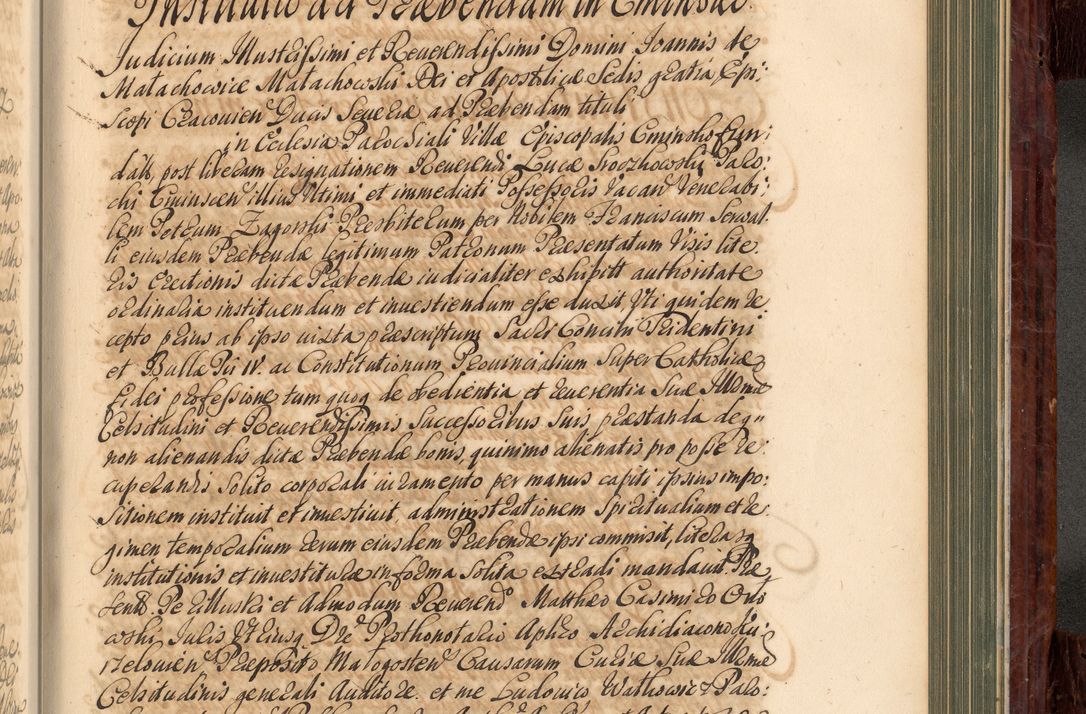 Institutio ad Præbendam in Cminsko.
Judicium Illustrissimi et Reverendissimi Domini Joannis de
Małachowice Małachowski Dei et Apostolicæ Sedis gratia Epi:
scopi Cracovien Ducis Severiæ ad Præbendam tituli
in Ecclesia Parochiali Villæ Episcopalis Cminsko fun:
dat, post liberam resignationem Reverendi Lucæ Paro:
chi Cminscen illius Ultimi et immediati Possessoris vacan Venerabi:
lem Petrum Zagorski Presbiterum per Nobilem Franciscum
li eiusdem Præbendæ legitimum Patronum Præsentatum Visis lite:
ris erectionis dictæ Præbendæ iudicialiter exhibitt authoritate
ordinaria instituendum et investiendum esse duxit Uti quidem re
cepto prius ab ipso iuxta præscriptum Sacri Concilii Tridentini
et Bulla Pii IV. ac Constitutionum Provincialium super Catholicæ
Fidei professione tum quoq de obedientia et reverentia Suæ Illmæ
Celsitudini et Reverendissimis Successoribus Suis præstanda deq
non alienandis dictæ Præbendæ bonis, quinimo alienatis pro posse re:
cuperandis solito corporali iuramento per manus capiti ipsius impo:
sitionem instituit et investivit, administrationem Spiritualium et re
gimen temporalium rerum eiusdem Præbendæ ipsi commisit, literasq
institutionis et investituræ in forma solita extradi mandavit Præ
sentt Perillustri et Admodum Reverendo Matthæo Casimiro
wski Juris Utriusq Dre Prothonotario Aplico Archidiacono
Præposito Małogosten Causarum Curiæ Suæ Illmæ
Celsitudinis generali Auditore. et me Ludovico Paro: